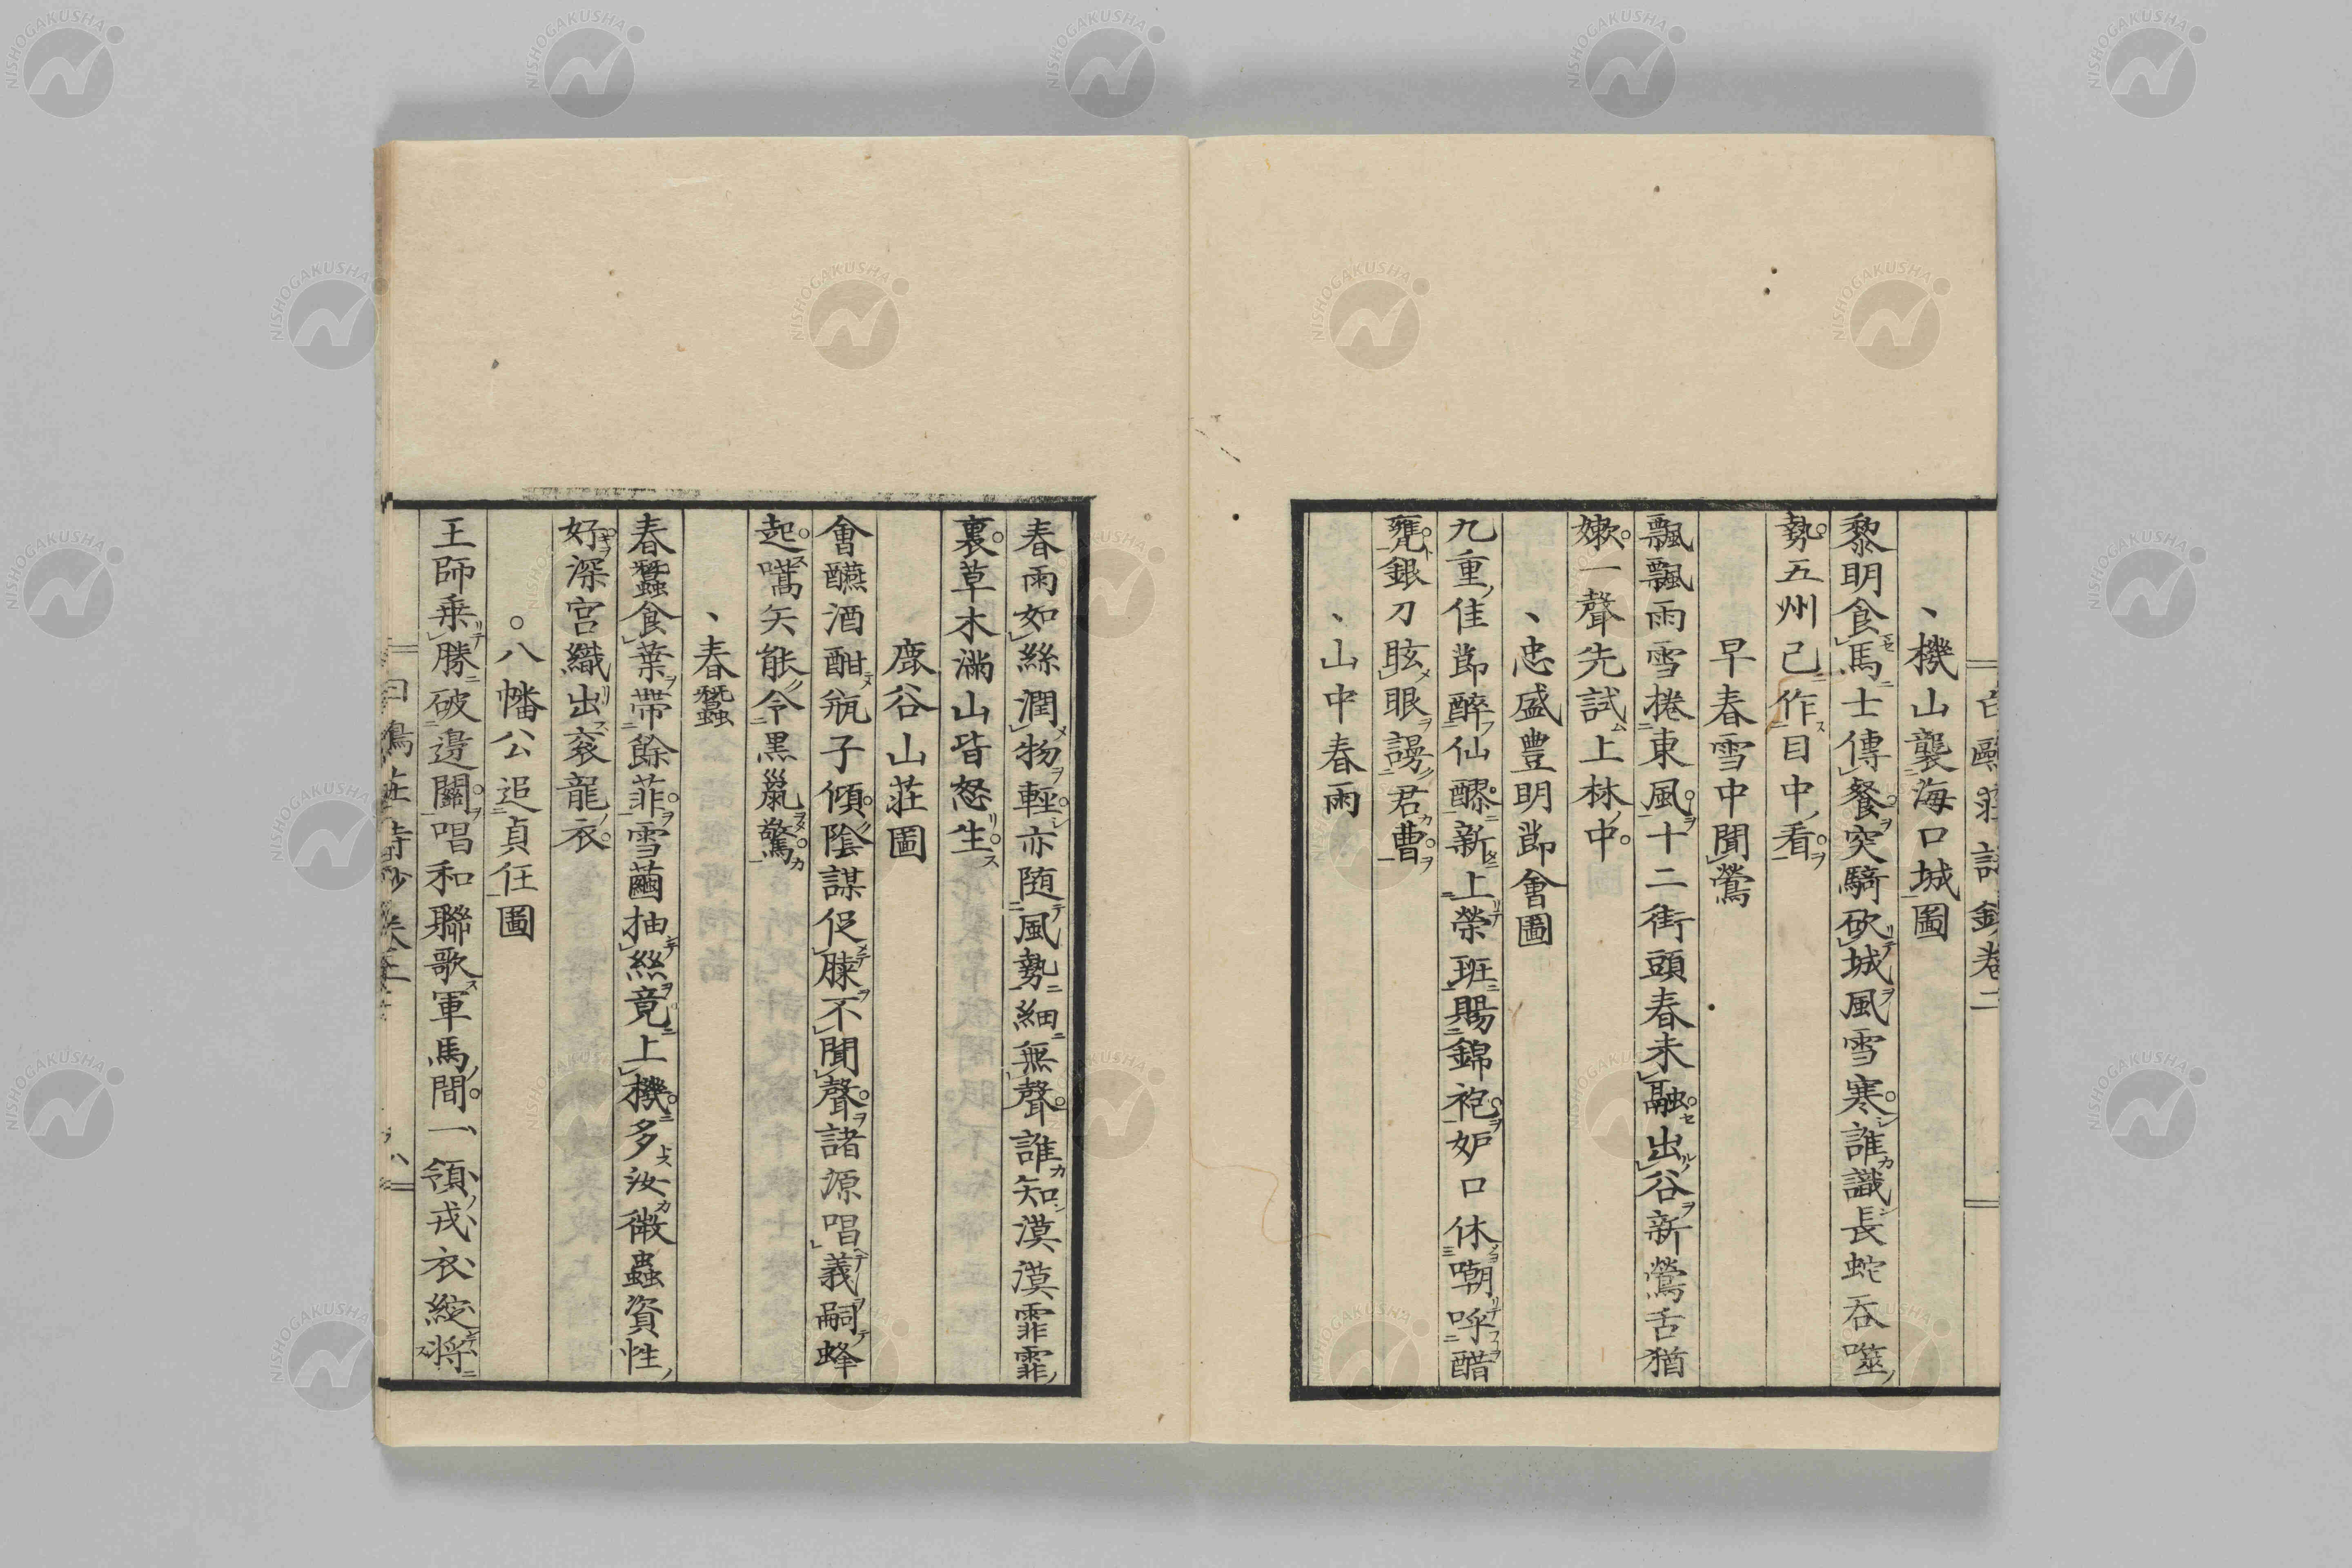 白鷗莊詩鈔卷二
、機山襲海口城圖
黎明食馬士傳餐突騎斫城風雪寒誰識長蛇吞噬
勢五州已作目中看
早春雪中聞鶯
飄飄雨雪捲東風十二街頭春未融出谷新鶯舌猶
嫩一聲先試上林中
、忠盛豊明節會圖
九重佳節醉仙醪新上榮班賜錦袍妒口休嘲呼醋
甕銀刀眩眼謾君曹
、山中春雨
春雨如絲潤物輕亦随風勢細無聲誰知漠漠霏霏
裏草木滿山皆怒生
鹿谷山莊圖
會醼酒酣瓶子傾陰謀促膝不聞聲諸源唱義嗣蜂
起嚆矢能令黒鼠驚
、春蠶
春蠶食葉帶餘菲雪繭抽絲竟上機多汝微蟲資性
好深宮織出衮龍衣
○八幡公追貞任圖
王師乗勝破邊關唱和聯歌軍馬間一領戎衣綻將
白鷗莊詩鈔卷二
八
NISHOGAKUSHA